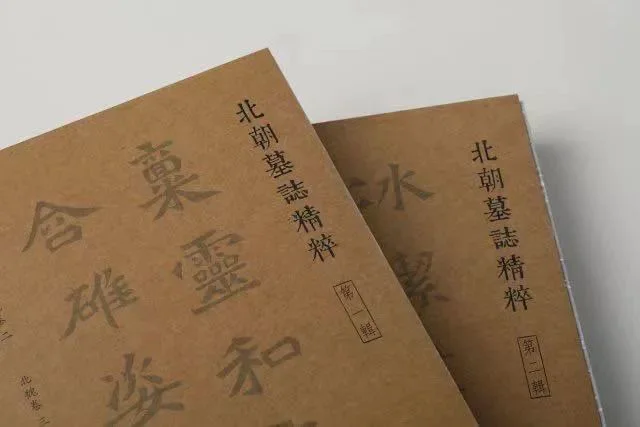 北朝墓誌精粹
第一輯
稟靈和
含確姿
北魏卷三
北朝墓誌精粹
第二輯
水潔